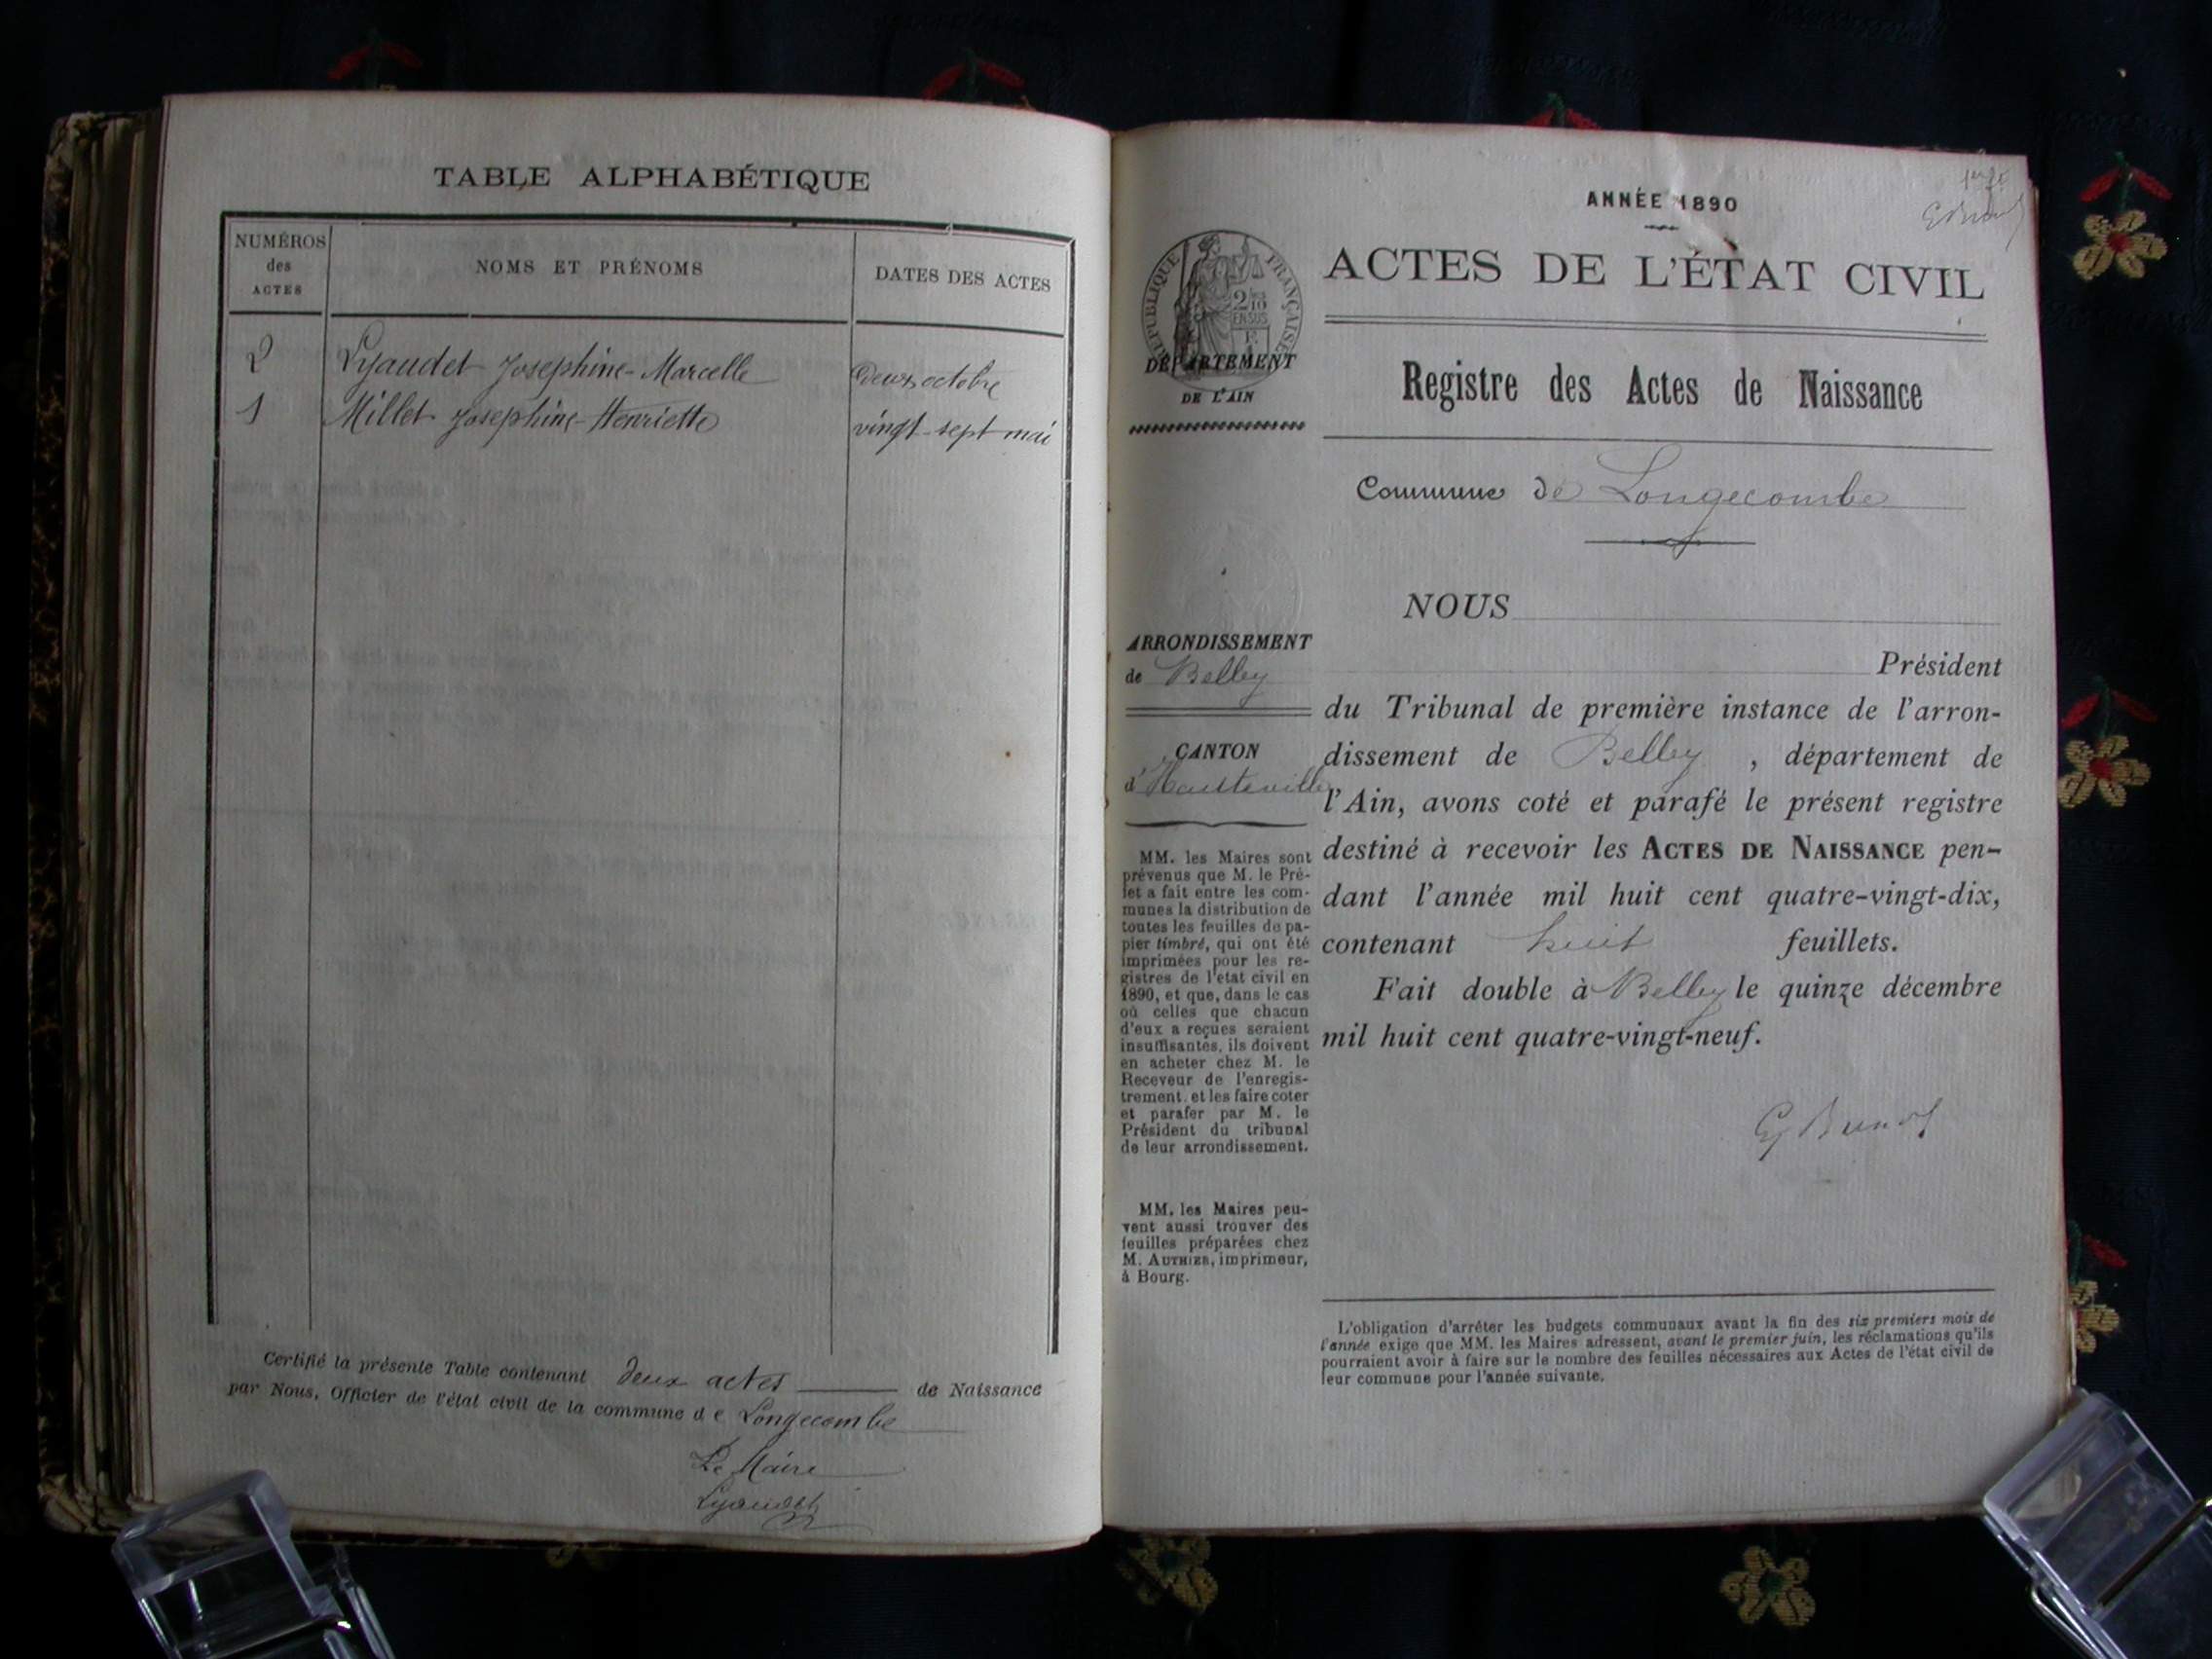 TABLE ALPHABÉTIQUE
NUMÉROS
des
ACTES
NOMS ET PRÉNOMS
DATES DES ACTES
2 Lyaudet Josephine-Marcelle deux octobre
1 Millet Josephine-Henriette vingt-sept mai
Certifié la présente Table contenant deux actes de Naissance
par Nous, Officier de l'état civil de la commune de Longecombe
Le Maire
Lyaudet
1er
ANNÉE 1890
ACTES DE L'ÉTAT CIVIL
RÉPUBLIQUE FRANÇAISE
2/10
EN SUS
DÉPARTEMENT
DE L'AIN
Registre des Actes de Naissance
Commune de Longecombe
NOUS
Président
du Tribunal de première instance de l'arron-
dissement de Belley, département de
l'Ain, avons coté et parafé le présent registre
destiné à recevoir les ACTES DE NAISSANCE pen-
dant l'année mil huit cent quatre-vingt-dix,
contenant huit feuillets.
Fait double à Belley le quinze décembre
mil huit cent quatre-vingt-neuf.
ARRONDISSEMENT
de Belley
CANTON
d'Hauteville
MM. les Maires sont
prévenus que M. le Pré-
fet a fait entre les com-
munes la distribution de
toutes les feuilles de pa-
pier timbré, qui ont été
imprimées pour les re-
gistres de l'état civil en
1890, et que, dans le cas
où celles que chacun
d'eux a reçues seraient
insuffisantes, ils doivent
en acheter chez M. le
Receveur de l'enregis-
trement. et les faire coter
et parafer par M. le
Président du tribunal
de leur arrondissement.
MM. les Maires peu-
vent aussi trouver des
feuilles préparées chez
M. AUTHIER, imprimeur,
à Bourg.
L'obligation d'arrêter les budgets communaux avant la fin des six premiers mois de
l'année exige que MM. les Maires adressent, avant le premier juin, les réclamations qu'ils
pourraient avoir à faire sur le nombre des feuilles nécessaires aux Actes de l'état civil de
leur commune pour l'année suivante.